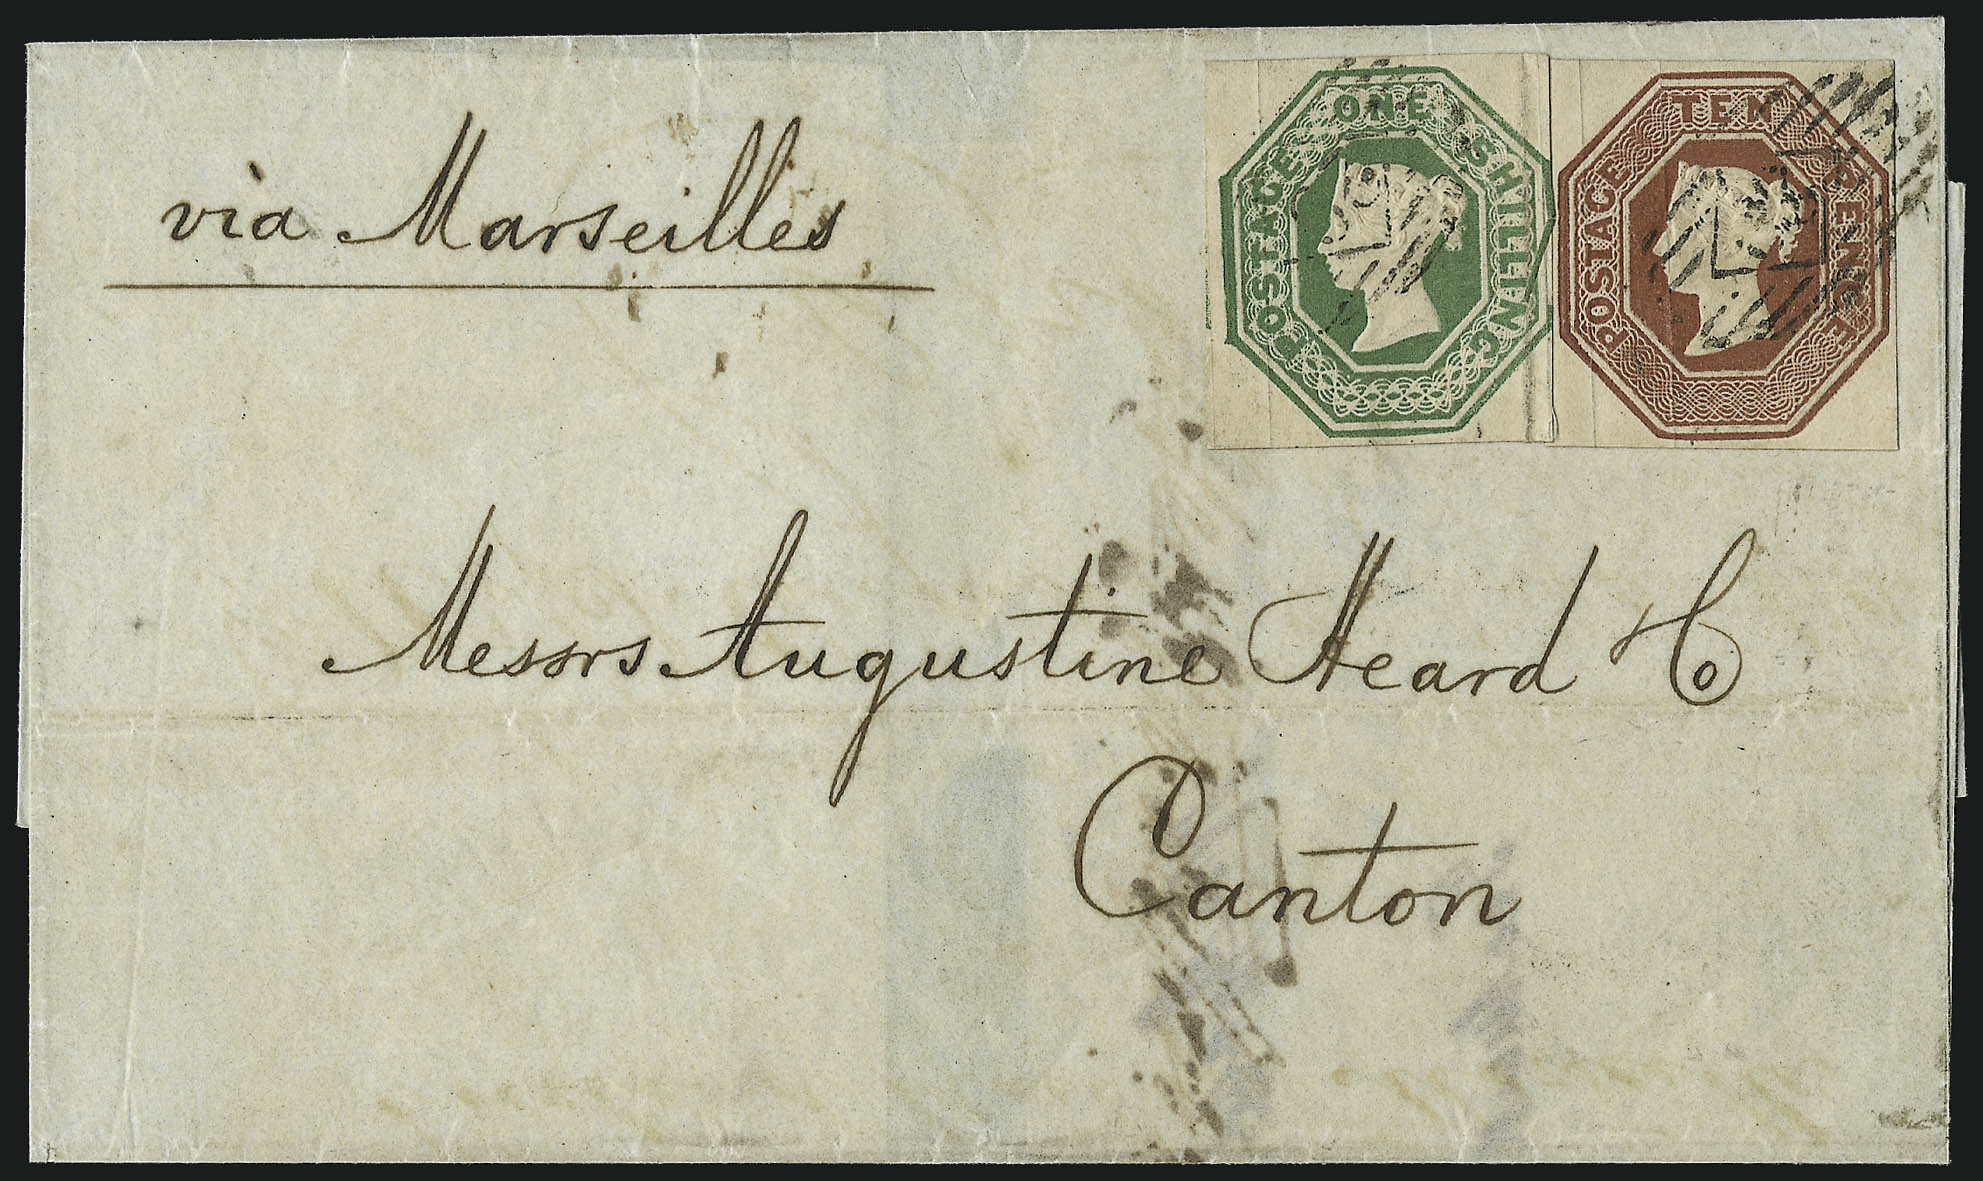 via Marseilles
POSTAGE ONE SHILLING
POSTAGE TEN PENCE
Messrs Augustine Heard & Co
Canton